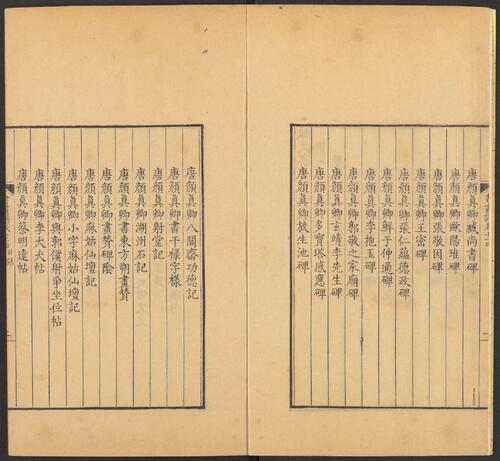 唐顏真卿臧尚書碑
唐顏真卿歐陽琟碑
唐顏真卿張敬因碑
唐顏真卿王密碑
唐顏真卿張仁蘊德政碑
唐顏真卿鮮于仲通碑
唐顏真卿李抱玉碑
唐顏真卿郭敬之家廟碑
唐顏真卿玄靖李先生碑
唐顏真卿多寶塔感應碑
唐顏真卿放生池碑
唐顏真卿八關齋功德記
唐顏真卿書干祿字樣
唐顏真卿射堂記
唐顏真卿湖州石記
唐顏真卿書東方朔畫贊
唐顏真卿畫贊碑陰
唐顏真卿麻姑仙壇記
唐顏真卿小字麻姑仙壇記
唐顏真卿與郭僕射爭坐位帖
唐顏真卿李大夫帖
唐顏真卿蔡明遠帖